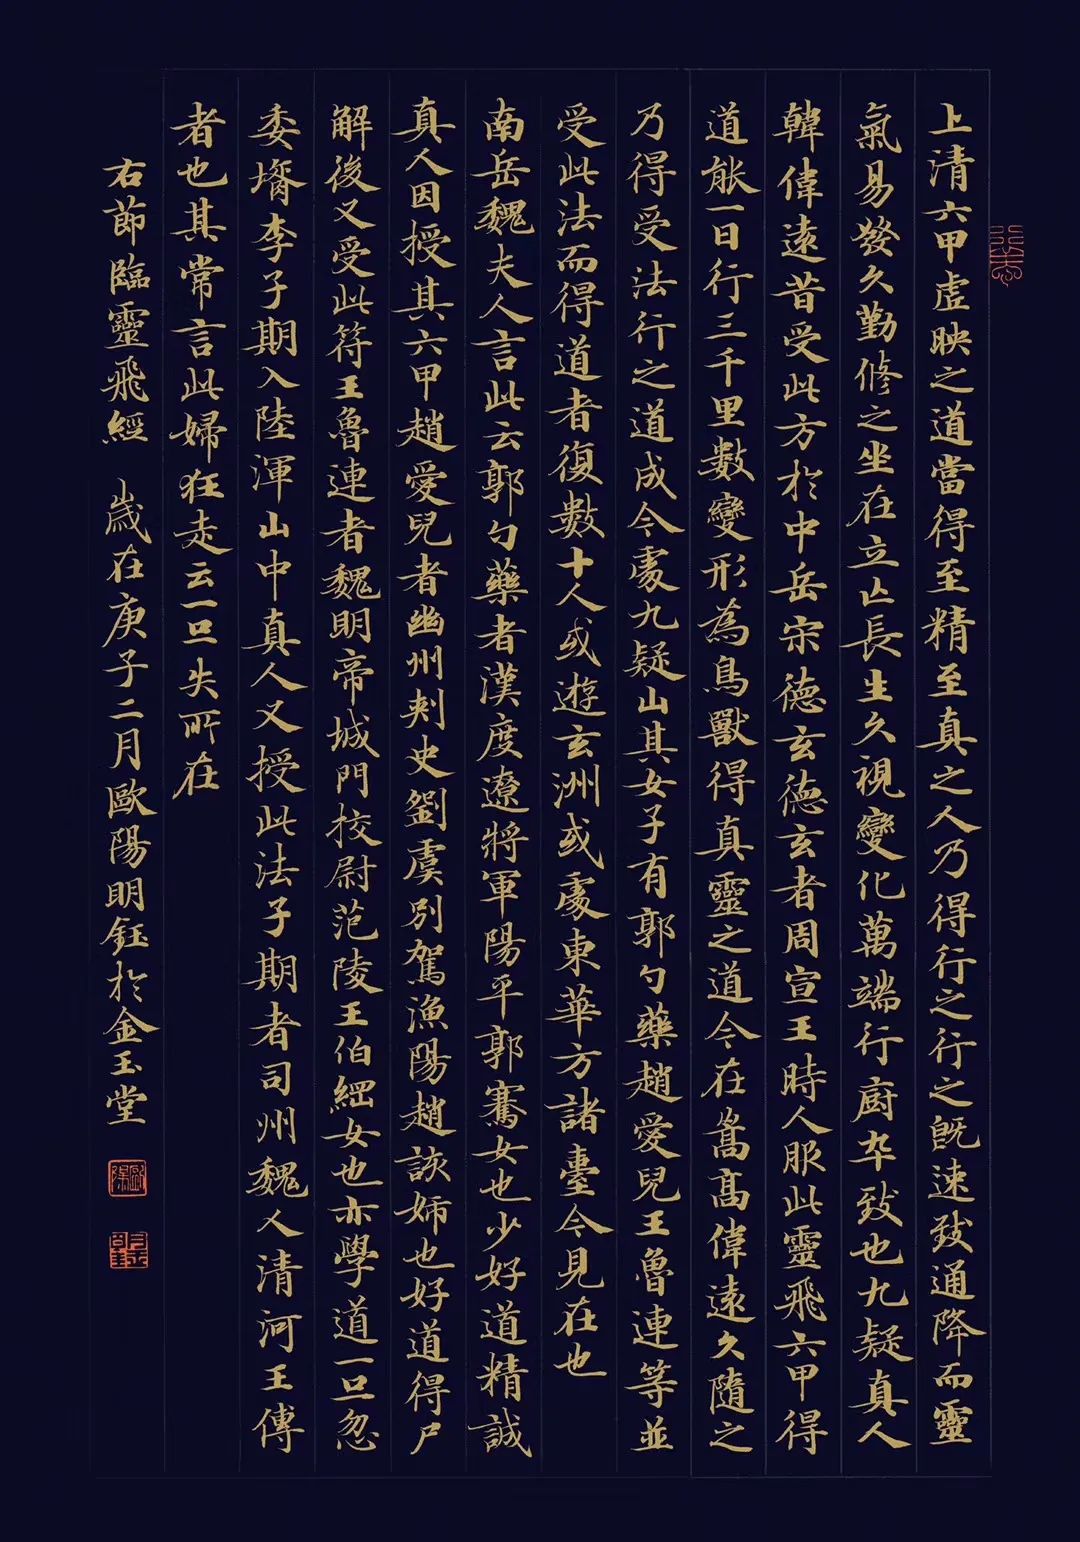 上清六甲虛映之道當得至精至真之人乃得行之行之既速致通降而靈
氣易發久勤修之坐在立亡長生久視變化萬端行廚卒致也九疑真人
韓偉遠昔受此方於中岳宋德玄德玄者周宣王時人服此靈飛六甲得
道能一日行三千里數變形為鳥獸得真靈之道今在嵩高偉遠久隨之
乃得受法行之道成今處九疑山其女子有郭勺藥趙愛兒王魯連等並
受此法而得道者復數十人或遊玄洲或處東華方諸臺今見在也
南岳魏夫人言此云郭勺藥者漢度遼將軍陽平郭騫女也少好道精誠
真人因授其六甲趙愛兒者幽州刺史劉虞別駕漁陽趙該姊也好道得尸
解後又受此符王魯連者魏明帝城門校尉范陵王伯綱女也亦學道一旦忽
委壻李子期入陸渾山中真人又授此法子期者司州魏人清河王傳
者也其常言此婦狂走云一旦失所在
右節臨靈飛經 歲在庚子二月歐陽明鈺於金玉堂
歐陽
明鈺